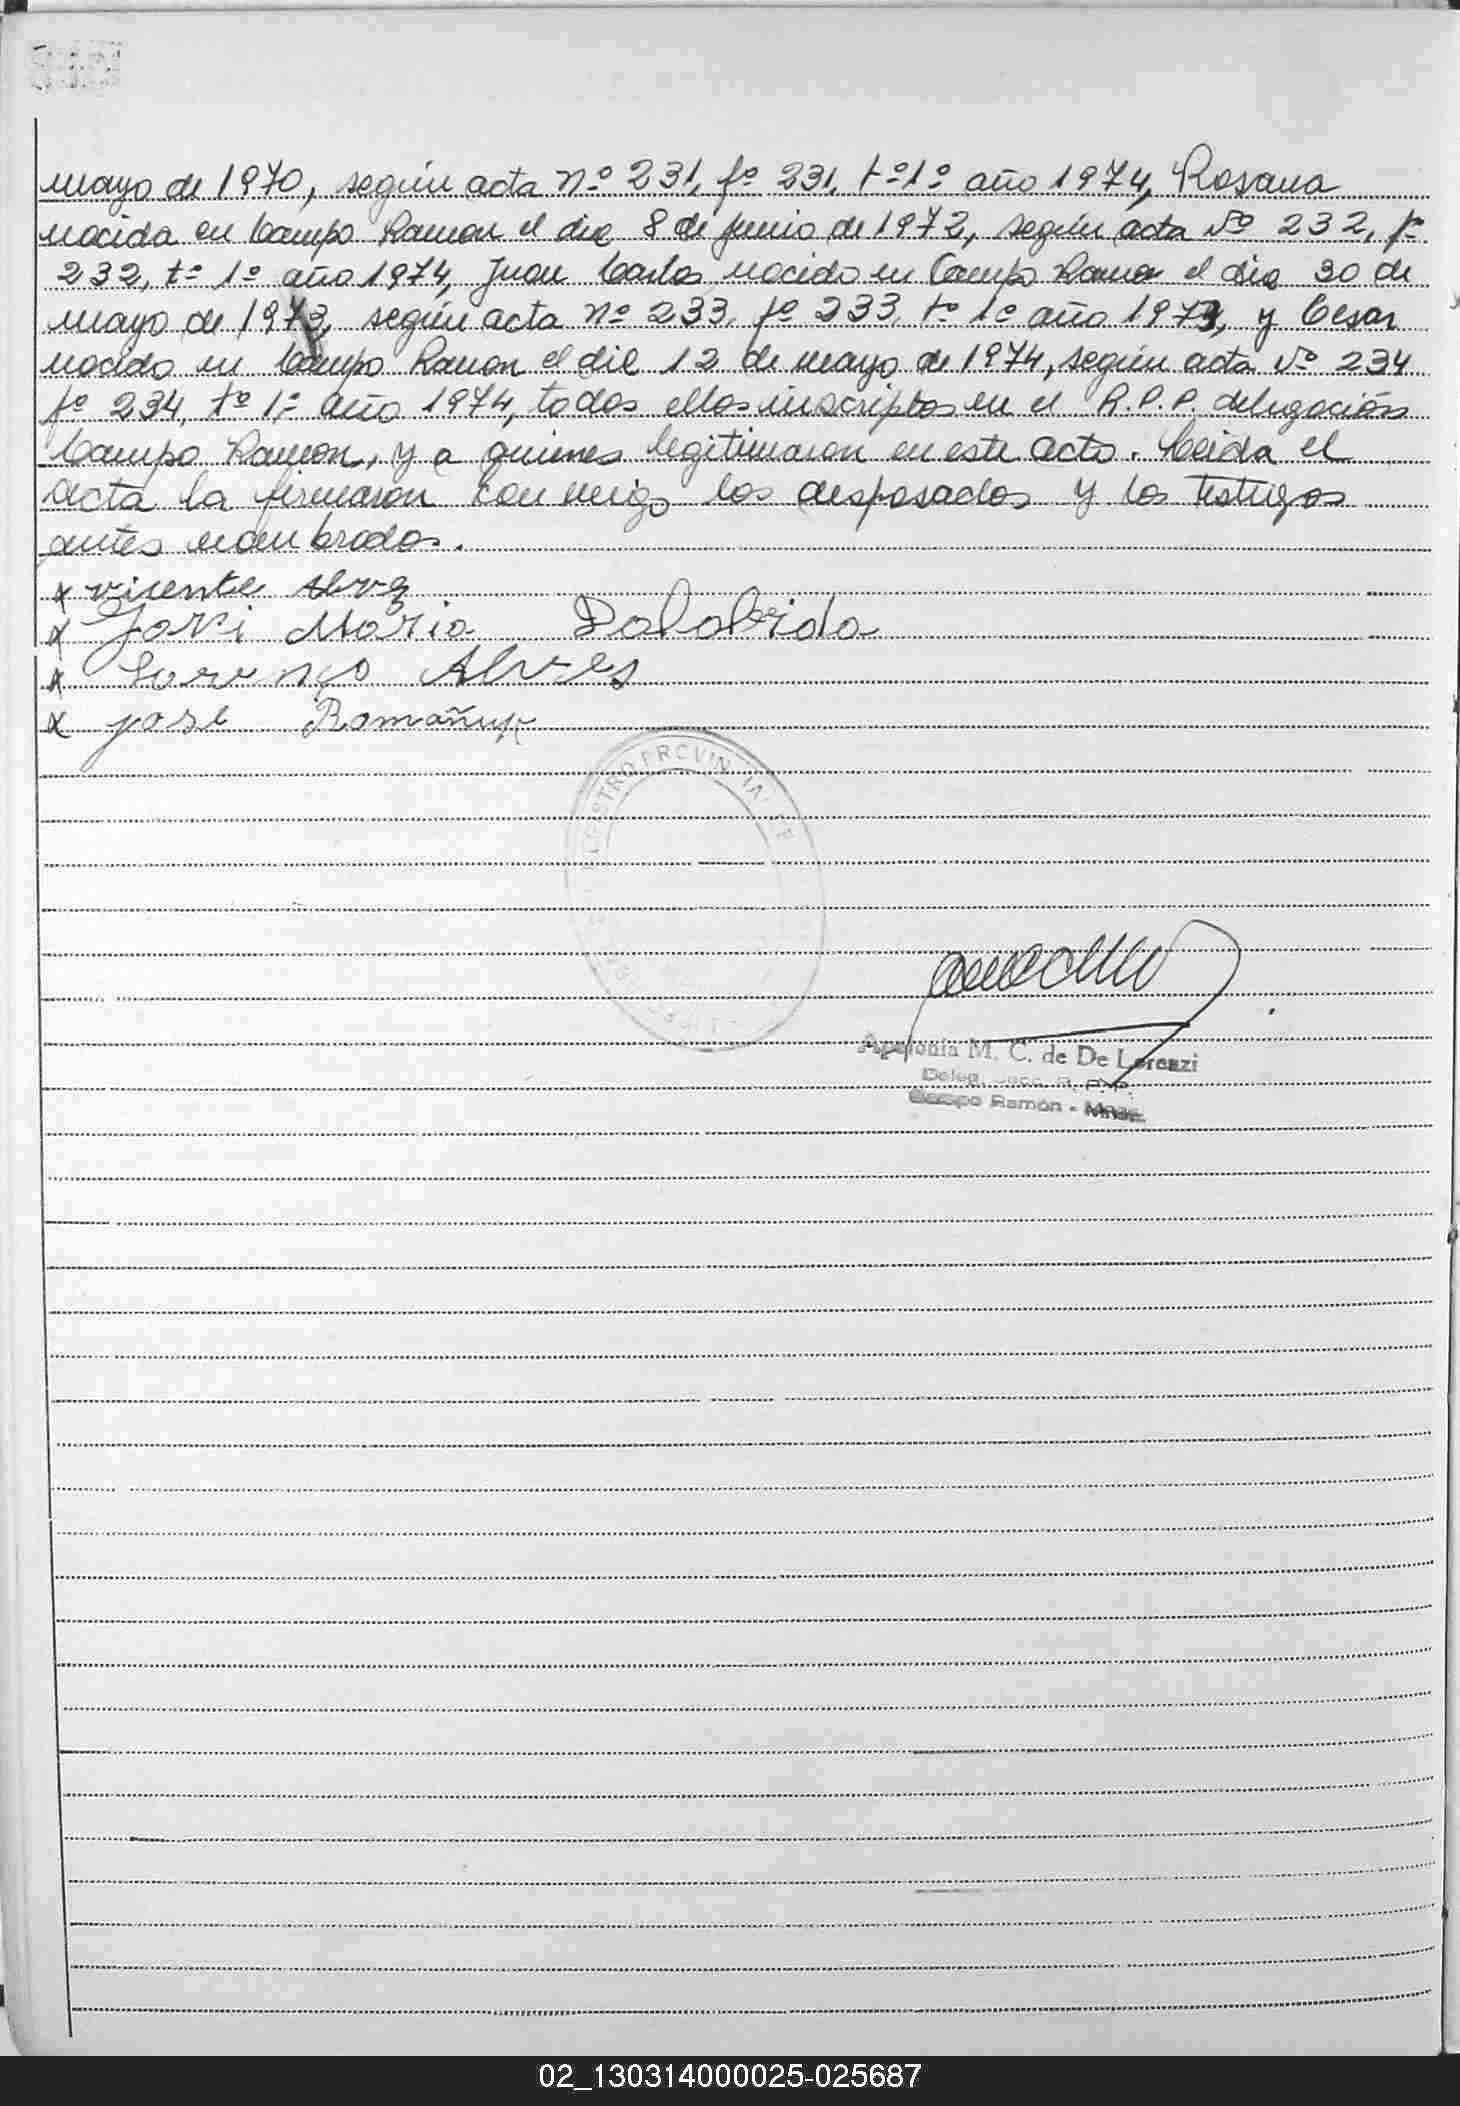 mayo de 1970, según acta nº 231, fº 231, tº 1º año 1974, Rosana
nacida en Campo Ramon el dia 8 de junio de 1972, según acta Nº 232, fº
232, tº 1º año 1974, Juan Carlos nacido en Campo Ramon el dia 30 de
mayo de 1973, según acta nº 233, fº 233, tº 1º año 1973, y Cesar
nacido en Campo Ramon el dia 12 de mayo de 1974, según acta Nº 234
fº 234, tº 1º año 1974, todos ellos inscriptos en el R.P.P. delegación
Campo Ramon, y a quienes legitimaron en este acto. Leida el
acta la firmaron conmigo los desposados y los testigos
antes nombrados.
x vicente
x Maria
x Lorenço Alves
x jose Romañuk
REGISTRO PROVINCIAL DE
Apolonia M. C. de De Lorenzi
Deleg. Secc. R. P. P.
Campo Ramón - Mnes.
02_130314000025-025687